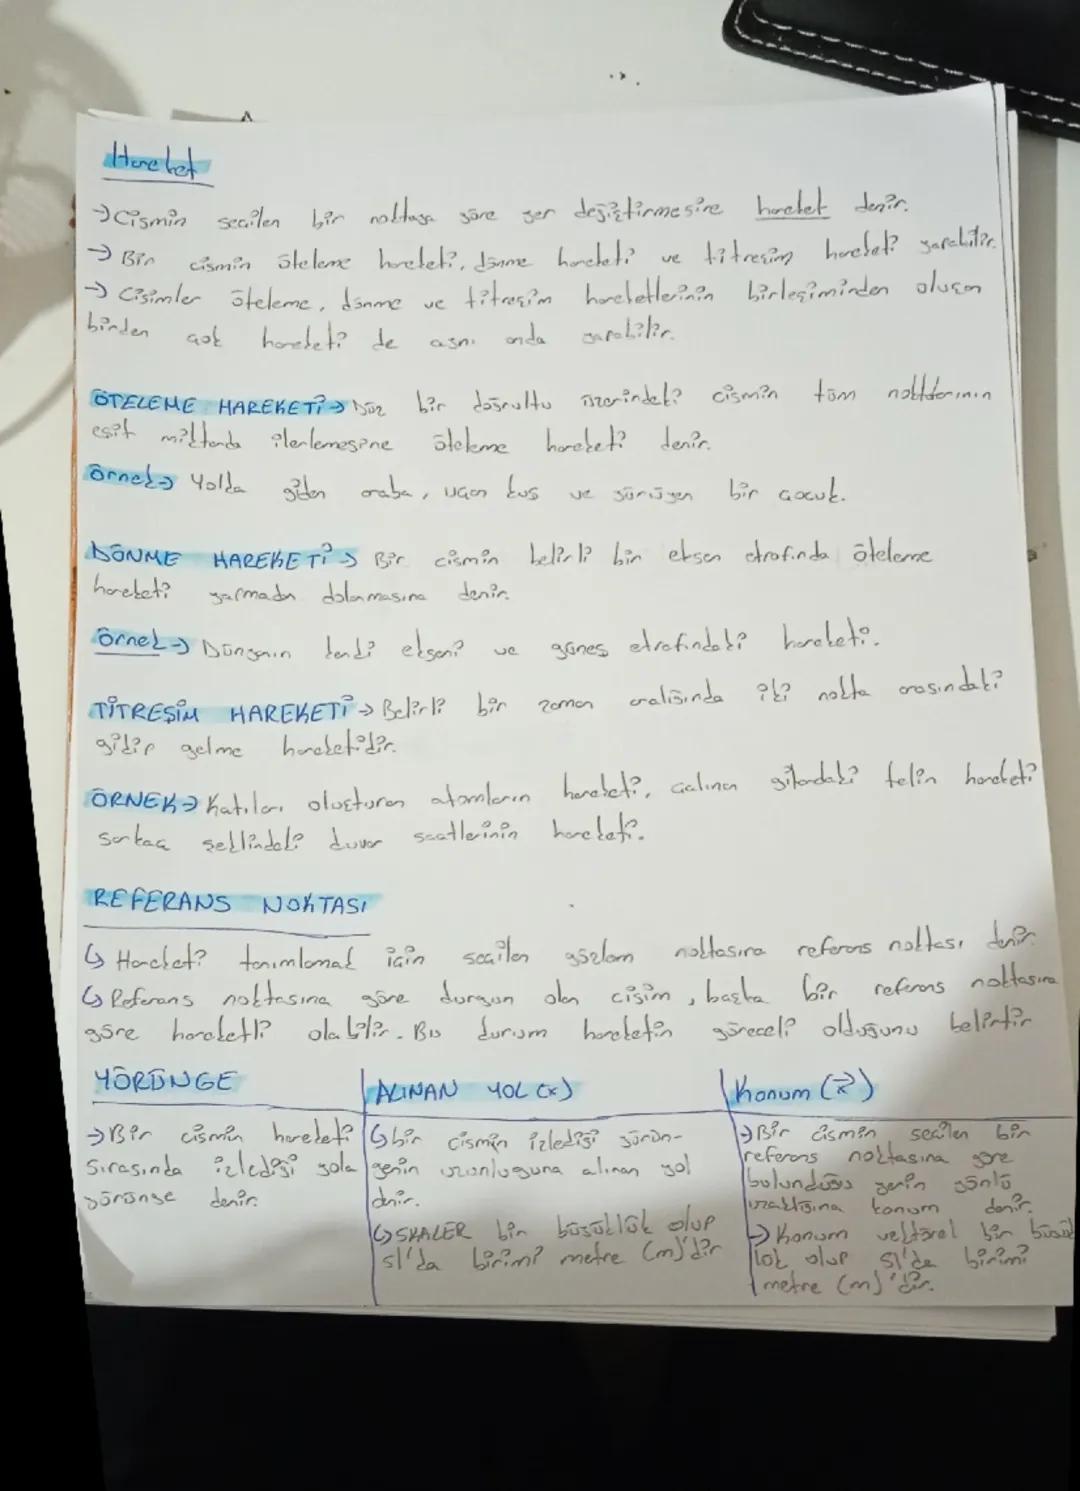 Hareket
→ Cismin seçilen bir noktaya göre yer değiştirmesine hareket denir.
→ Bir cismin öteleme hareketi, dönme hareketi ve titreşim hareketi yapabilir.
→ Cisimler öteleme, dönme ve titreşim hareketlerinin birleşiminden oluşan
birden çok hareketi de aynı anda yapabilir.
ÖTELEME HAREKETİ → Düz bir doğrultu üzerindeki cismin tüm noktalarının
eşit miktarda ilerlemesine öteleme hareketi denir.
Örnek → Yolda giden araba, uçan kuş ve yürüyen bir çocuk.
DÖNME HAREKETİ → Bir cismin belirli bir eksen etrafında öteleme
hareketi yapmadan dolanmasına denir.
Örnek → Dünyanın kendi ekseni ve güneş etrafındaki hareketi.
TİTREŞİM HAREKETİ → Belirli bir zaman aralığında iki nokta arasındaki
gidip gelme hareketidir.
ÖRNEK → Katıları oluşturan atomların hareketi, çalınan gitardaki telin hareketi
sarkaç şeklindeki duvar saatlerinin hareketi.
REFERANS NOKTASI
↳ Hareketi tanımlamak için seçilen gözlem noktasına referans noktası denir.
↳ Referans noktasına göre durgun olan cisim, başka bir referans noktasına
göre hareketli olabilir. Bu durum hareketin göreceli olduğunu belirtir
YÖRÜNGE
→ Bir cismin hareketi
sırasında izlediği yola
yörünge denir.
ALINAN YOL (x)
↳ bir cismin izlediği yörün-
genin uzunluğuna alınan yol
denir.
↳ SKALER bir büyüklük olup
SI'da birimi metre (m)'dir
Konum (x⃗)
→ Bir cismin seçilen bir
referans noktasına göre
bulunduğu yerin yönlü
uzaklığına konum denir.
→ Konum vektörel bir büyük
lük olup SI'da birimi
metre (m)'dir.